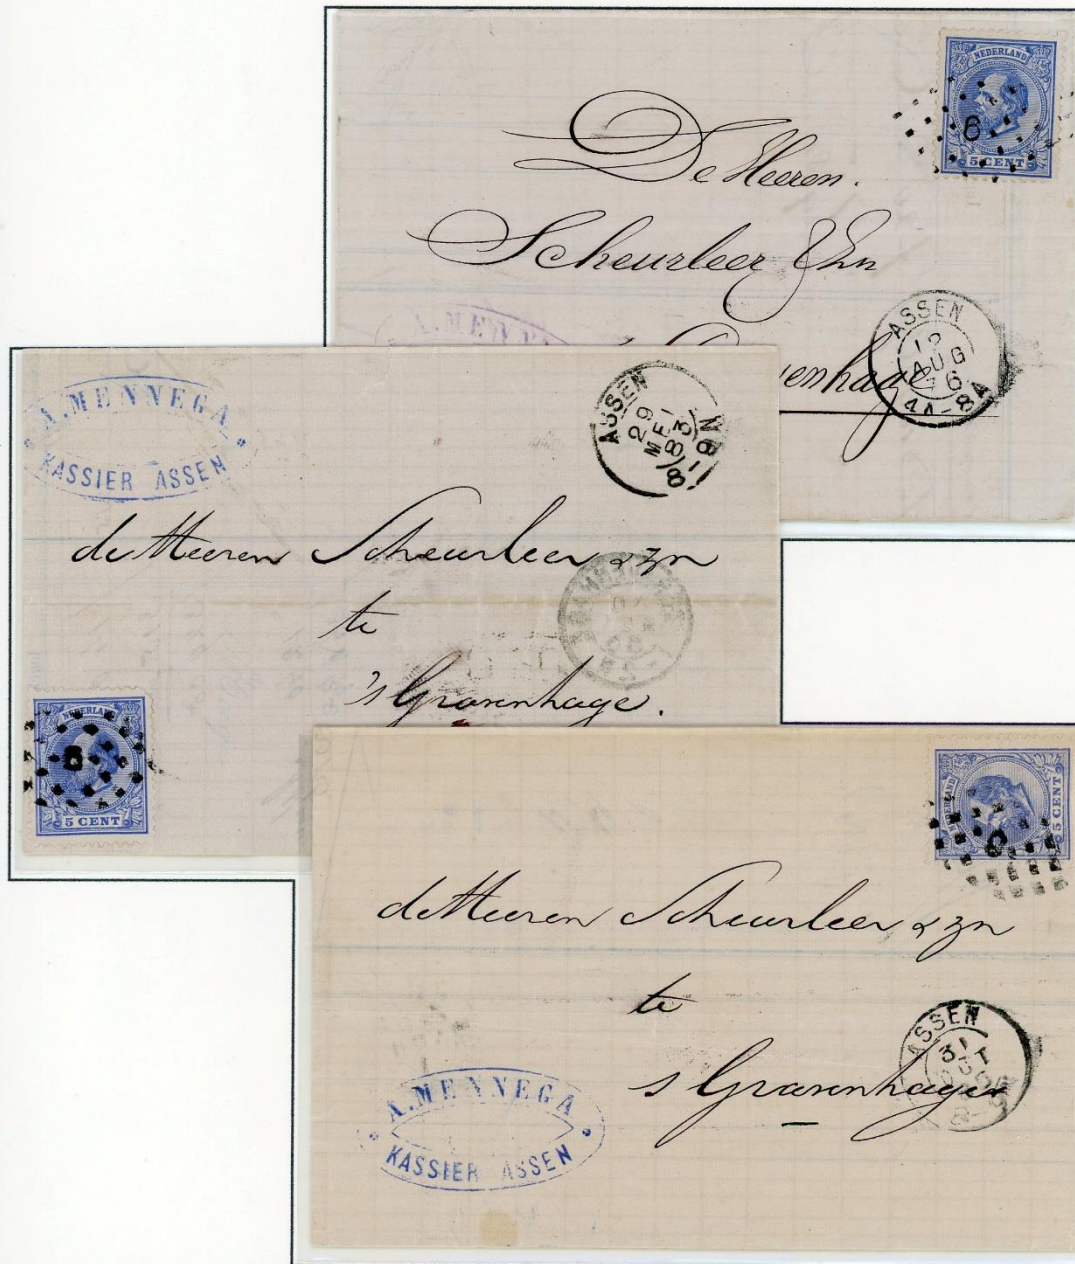 NEDERLAND
6
5 CENT
De Heeren.
Scheurleer & Zn
enhage
A. MENNE
ASSEN
12
AUG
76
4A-8A
A. MENNEGA
KASSIER ASSEN
ASSEN
29
MEI
83
8-18N
de Heeren Scheurleer & zn
te
's Gravenhage.
NEDERLAND
5 CENT
NEDERLAND
5 CENT
de Heeren Scheurleer & zn
te
s Gravenhage
ASSEN
31
OCT
A. MENNEGA
KASSIER ASSEN